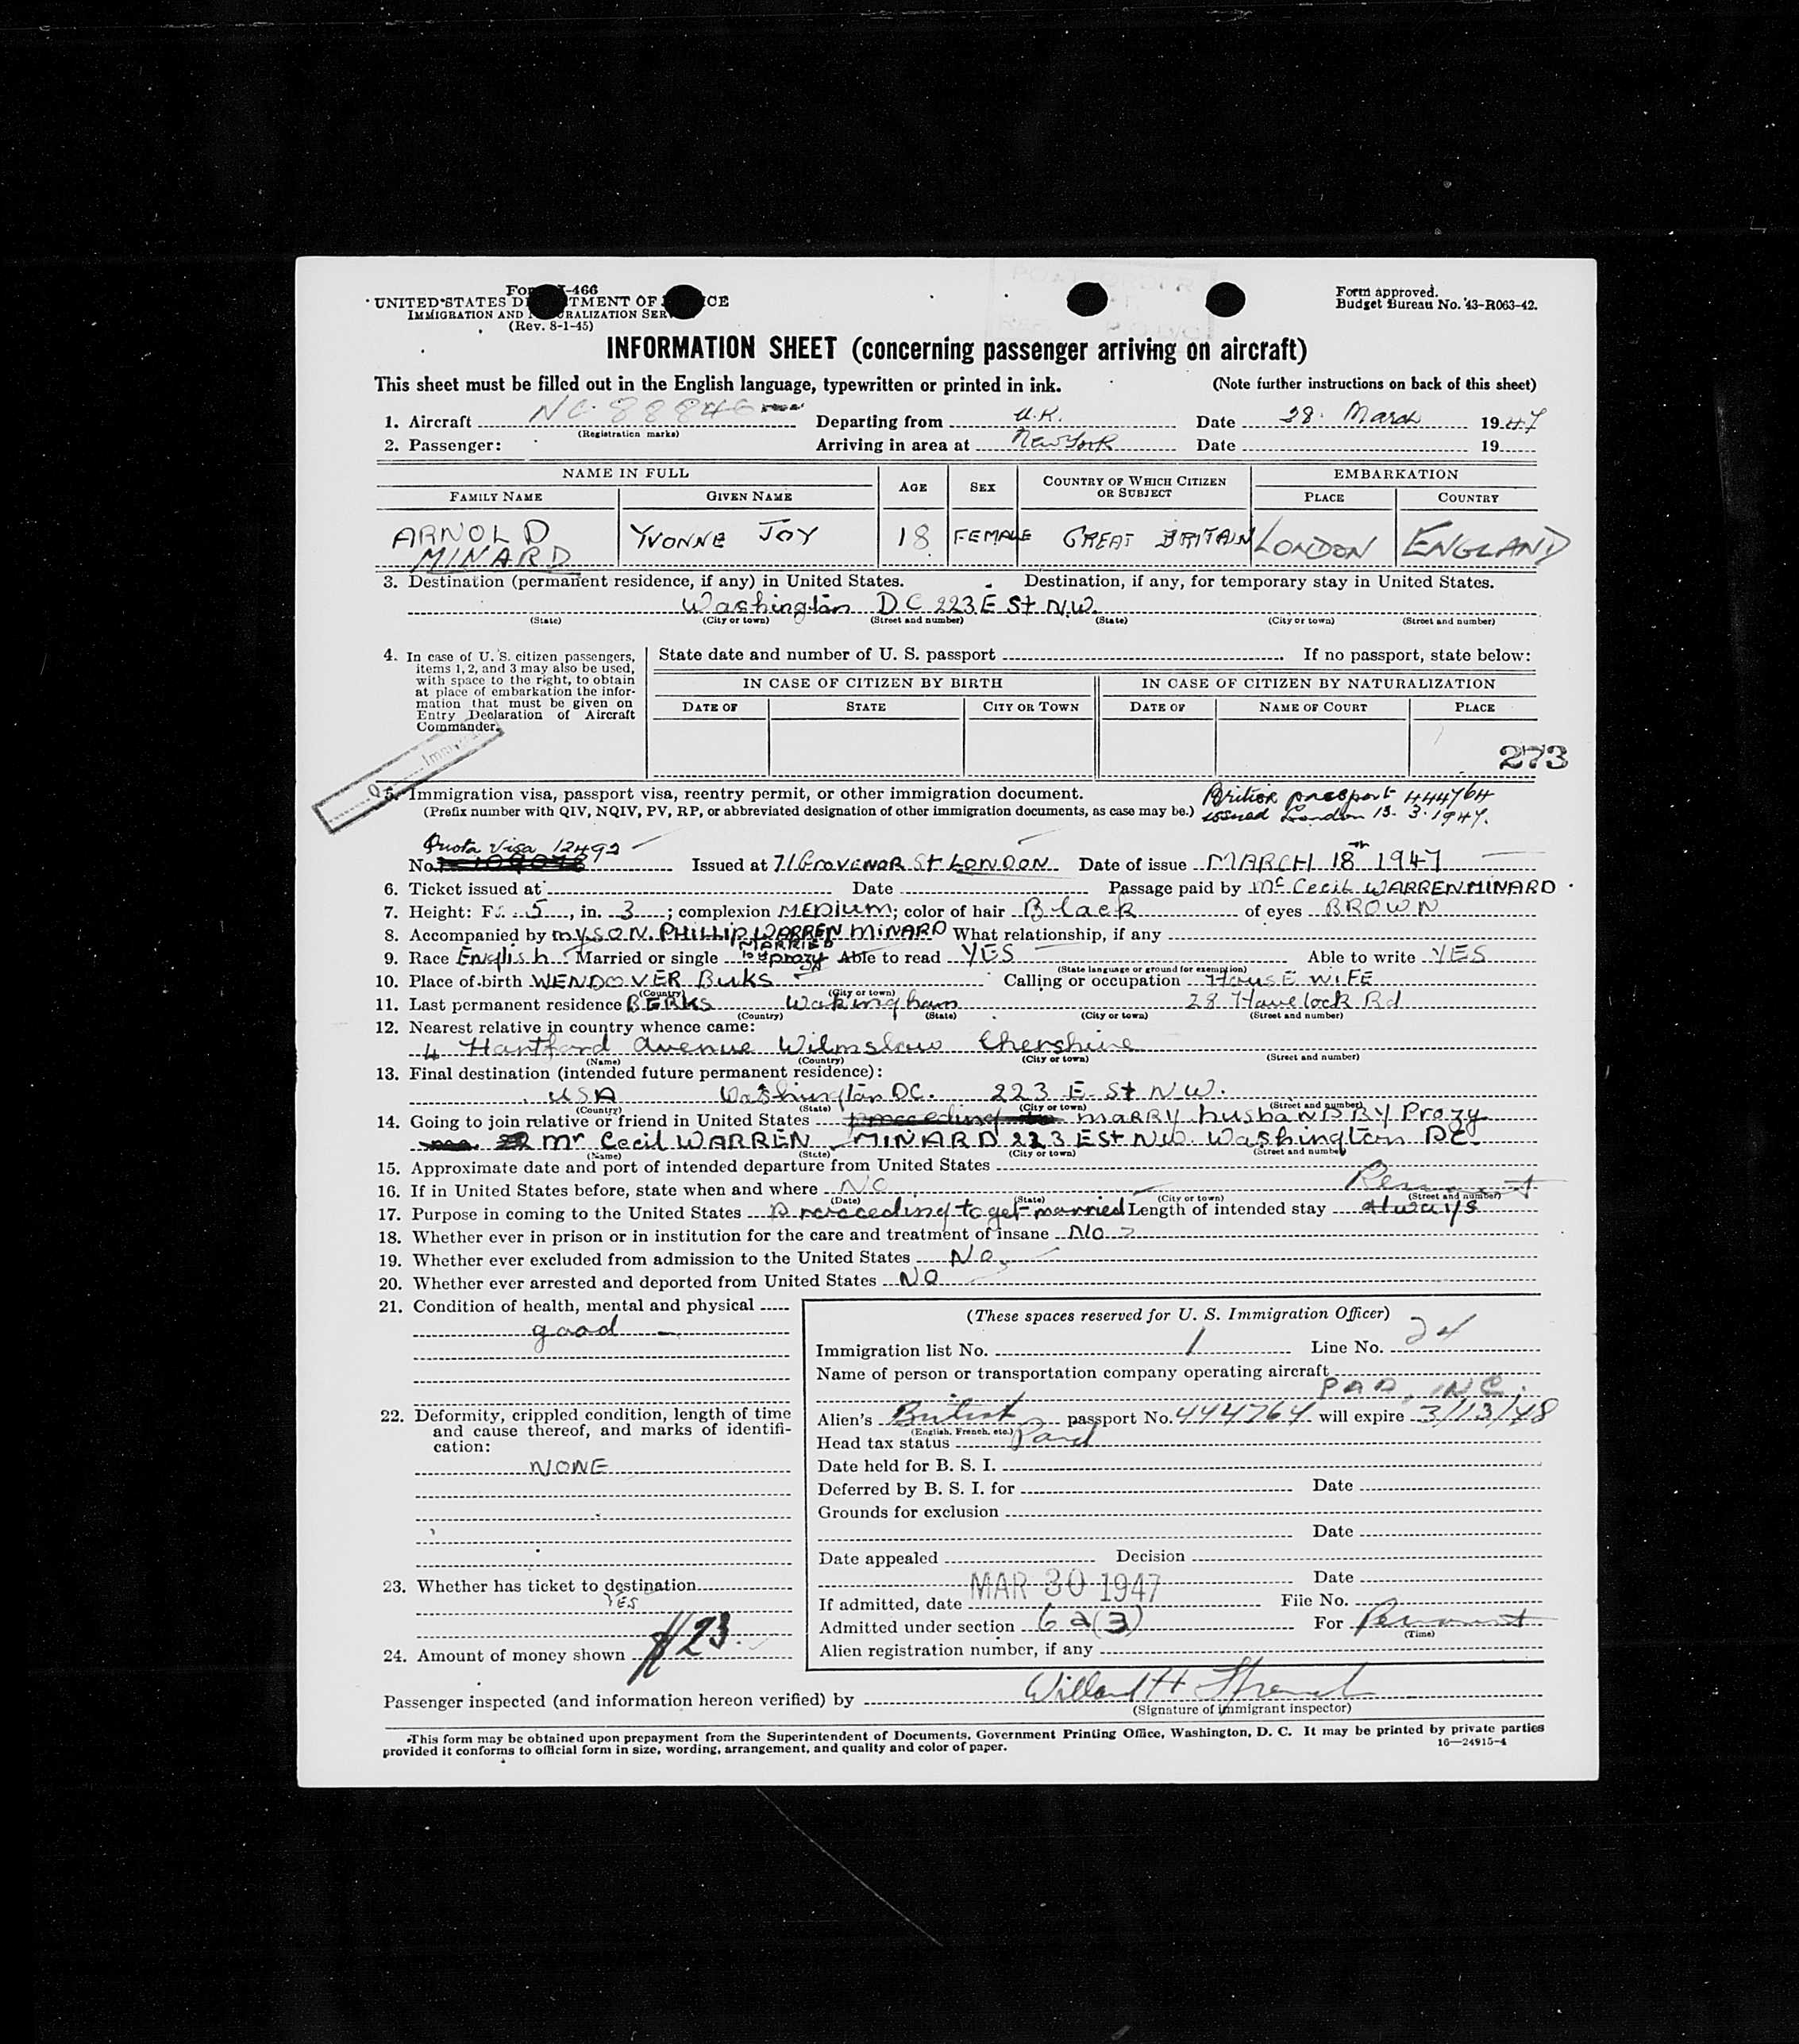 Form I-466
UNITED STATES DEPARTMENT OF JUSTICE
IMMIGRATION AND NATURALIZATION SERVICE
(Rev. 8-1-45)
Form approved.
Budget Bureau No. 43-R063-42.
INFORMATION SHEET (concerning passenger arriving on aircraft)
This sheet must be filled out in the English language, typewritten or printed in ink. (Note further instructions on back of this sheet)
1. Aircraft NC 88846 Departing from U.K. Date 28. March 1947
(Registration marks)
2. Passenger: Arriving in area at New York Date 19
NAME IN FULL AGE SEX COUNTRY OF WHICH CITIZEN OR SUBJECT EMBARKATION
FAMILY NAME GIVEN NAME PLACE COUNTRY
ARNOLD YVONNE JOY 18 FEMALE GREAT BRITAIN LONDON ENGLAND
MINARD
3. Destination (permanent residence, if any) in United States. Destination, if any, for temporary stay in United States.
Washington DC 223 E St N.W.
(State) (City or town) (Street and number) (State) (City or town) (Street and number)
4. In case of U. S. citizen passengers, items 1, 2, and 3 may also be used, with space to the right, to obtain at place of embarkation the information that must be given on Entry Declaration of Aircraft Commander.
State date and number of U. S. passport . If no passport, state below:
IN CASE OF CITIZEN BY BIRTH IN CASE OF CITIZEN BY NATURALIZATION
DATE OF STATE CITY OR TOWN DATE OF NAME OF COURT PLACE
273
5. Immigration visa, passport visa, reentry permit, or other immigration document. British passport 444764
(Prefix number with QIV, NQIV, PV, RP, or abbreviated designation of other immigration documents, as case may be.) issued London 13. 3. 1947.
Quota Visa 12492
No. Issued at 71 GROVENOR St LONDON Date of issue MARCH 18th 1947
6. Ticket issued at Date Passage paid by Mr Cecil WARREN MINARD
7. Height: Ft. 5, in. 3; complexion MEDIUM; color of hair Black of eyes BROWN
8. Accompanied by MY SON. PHILLIP WARREN MINARD What relationship, if any
MARRIED
9. Race English Married or single by prozy Able to read YES Able to write YES
(State language or ground for exemption)
10. Place of birth WENDOVER Buks Calling or occupation HOUSE WIFE
(Country) (City or town)
11. Last permanent residence BERKS Wokingham 28 Havelock Rd
(Country) (State) (City or town) (Street and number)
12. Nearest relative in country whence came:
4 Hartford avenue Wilmslow Chershire
(Name) (Country) (City or town) (Street and number)
13. Final destination (intended future permanent residence):
USA Washington DC. 223 E St N W.
(Country) (State) (City or town) (Street and number)
14. Going to join relative or friend in United States proceeding to MARRY husbaND BY Prozy
Mr Cecil WARREN MINARD 223 E St NW Washington DC.
(Name) (State) (City or town) (Street and number)
15. Approximate date and port of intended departure from United States
16. If in United States before, state when and where NO
(Date) (State) (City or town) (Street and number)
17. Purpose in coming to the United States proceeding to get married Length of intended stay always
18. Whether ever in prison or in institution for the care and treatment of insane No
19. Whether ever excluded from admission to the United States No.
20. Whether ever arrested and deported from United States NO
21. Condition of health, mental and physical
good
22. Deformity, crippled condition, length of time and cause thereof, and marks of identification:
NONE
23. Whether has ticket to destination
YES
24. Amount of money shown $23.
(These spaces reserved for U. S. Immigration Officer)
Immigration list No. 1 Line No. 24
Name of person or transportation company operating aircraft
PAA, INC.
Alien's British passport No. 444764 will expire 3/13/48
(English, French, etc.)
Head tax status Paid
Date held for B. S. I.
Deferred by B. S. I. for Date
Grounds for exclusion
Date
Date appealed Decision
Date
If admitted, date MAR 30 1947 File No.
Admitted under section 6 a (3) For Permanent
(Time)
Alien registration number, if any
Passenger inspected (and information hereon verified) by Willard H
(Signature of immigrant inspector)
This form may be obtained upon prepayment from the Superintendent of Documents, Government Printing Office, Washington, D. C. It may be printed by private parties
provided it conforms to official form in size, wording, arrangement, and quality and color of paper. 16—24915-4